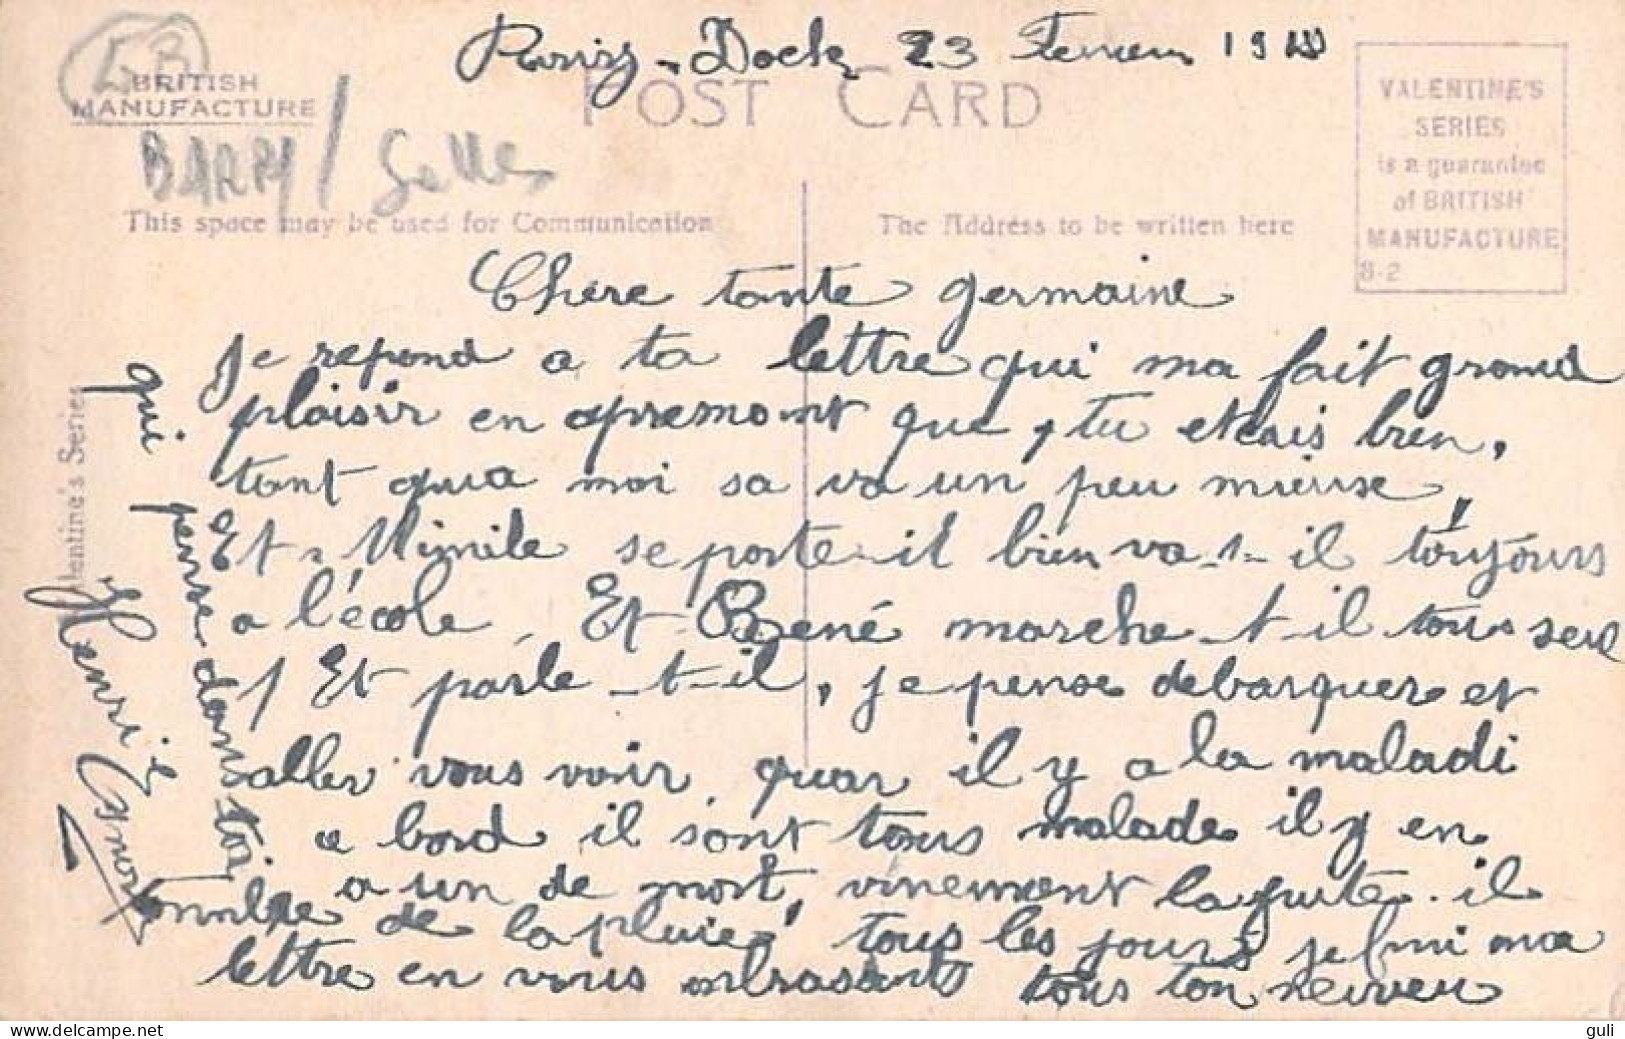 Barry-Dock 23 Fevrier 19
BRITISH
MANUFACTURE
POST CARD
VALENTINE'S
SERIES
is a guarantee
of BRITISH
MANUFACTURE
8-2
BARRY / Galles
This space may be used for Communication
The Address to be written here
Valentine's Series
Chere tante germaine
Je repond a ta lettre qui ma fait grand
plaisir en apremont que tu etais bien,
tant qua moi sa va un peu mieuse,
Et Mimile se porte-il bien va-t-il toujours
a l'école, Et René marche-t-il tous seul
Et parle-t-il, je pense debarquer et
aller vous voir, quar il y a la maladi
a bord il sont tous malade il y en
a un de mort, vinement la fuite. il
tombe de la pluie, tous les jours je fini ma
lettre en vous mbrasant tous ton neuveu
qui pense dans toi
Henri
guli